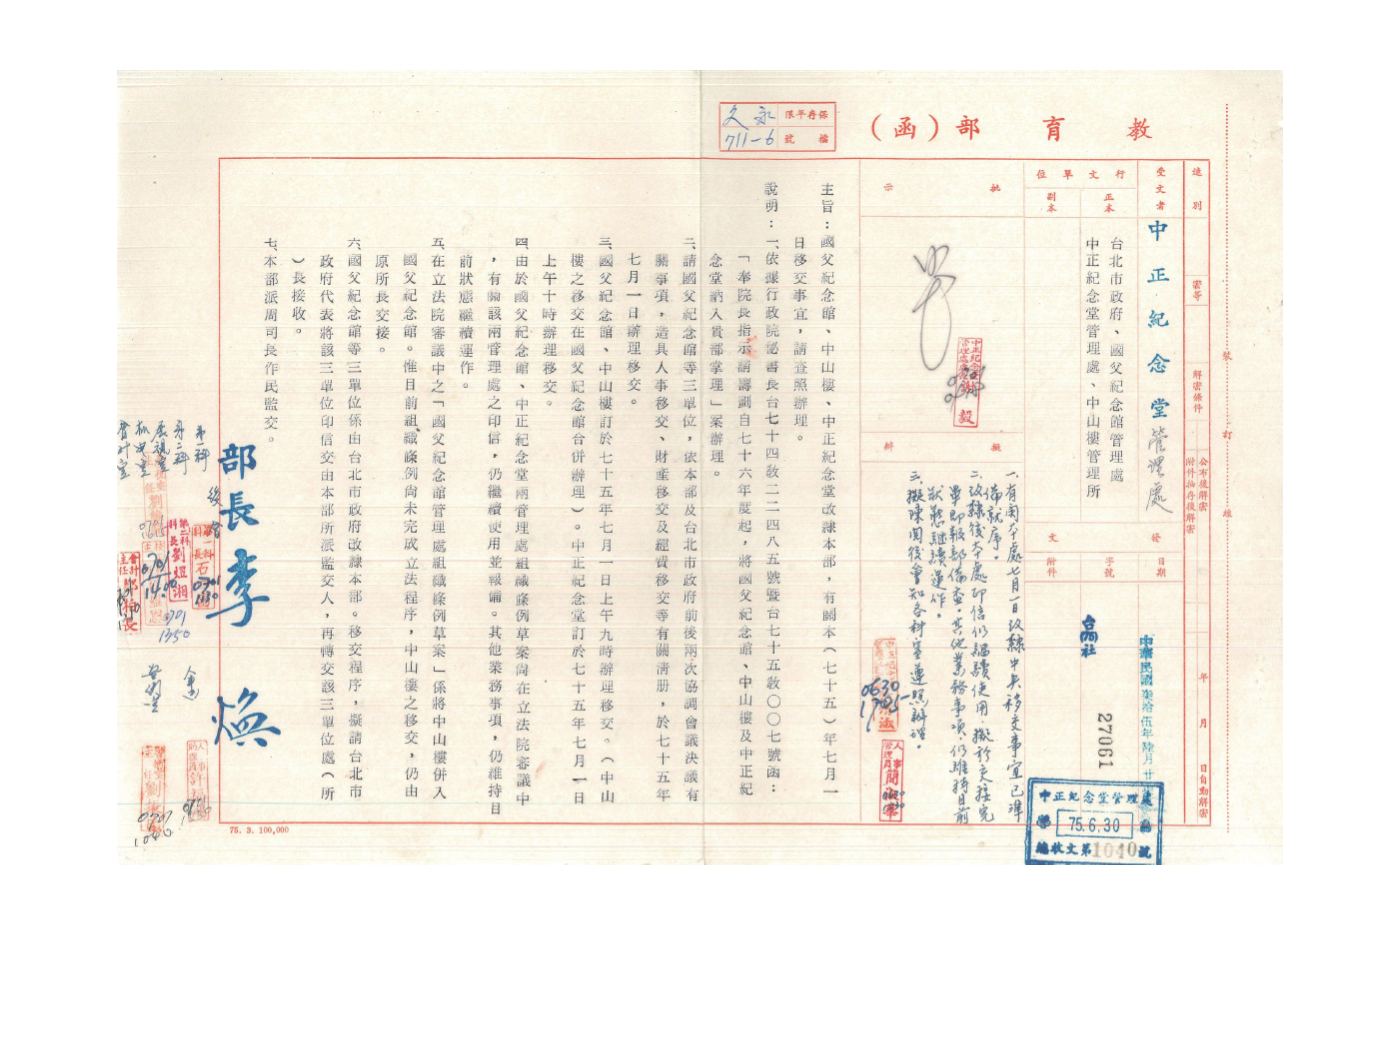 教育部（函）
保存年限 永久
檔號 711-6
速別
密等
解密條件
公布後解密
附件抽存後解密
年 月 日自動解密
裝
訂
線
受文者
中正紀念堂管理處
行文單位
正本
副本
台北市政府、國父紀念館管理處
中正紀念堂管理處、中山樓管理所
發文
日期
字號
附件
中華民國柒拾伍年陸月廿
台(75)社
27061
中正紀念堂管理處
75.6.30
總收文第1040號
批示
擬辦
一、有關本處七月一日改隸中央移交事宜已準
備就序。
二、改隸後本處印信仍繼續使用，擬於交接完
畢即報部備查。其他業務事項，仍維持目前
狀態繼續運作。
三、擬陳閱後會知各科室遵照辦理。
0630
主旨：國父紀念館、中山樓、中正紀念堂改隸本部，有關本（七十五）年七月一
日移交事宜，請查照辦理。
說明：一、依據行政院祕書長台七十四敎二二四八五號暨台七十五敎〇〇七號函：
「奉院長指示請籌劃自七十六年度起，將國父紀念館、中山樓及中正紀
念堂納入貴部掌理」案辦理。
二、請國父紀念館等三單位，依本部及台北市政府前後兩次協調會議決議有
關事項，造具人事移交、財產移交及經費移交等有關淸册，於七十五年
七月一日辦理移交。
三、國父紀念館、中山樓訂於七十五年七月一日上午九時辦理移交。（中山
樓之移交在國父紀念館合併辦理）。中正紀念堂訂於七十五年七月一日
上午十時辦理移交。
四、由於國父紀念館、中正紀念堂兩管理處組織條例草案尙在立法院審議中
，有關該兩管理處之印信，仍繼續使用並報備。其他業務事項，仍維持目
前狀態繼續運作。
五、在立法院審議中之「國父紀念館管理處組織條例草案」係將中山樓併入
國父紀念館。惟目前組織條例尙未完成立法程序，中山樓之移交，仍由
原所長交接。
六、國父紀念館等三單位係由台北市政府改隸本部。移交程序，擬請台北市
政府代表將該三單位印信交由本部所派監交人，再轉交該三單位處（所
）長接收。
七、本部派周司長作民監交。
部長李煥
後會
第一科
第二科
展視室
會計室
0701
1350
75. 3. 100,000